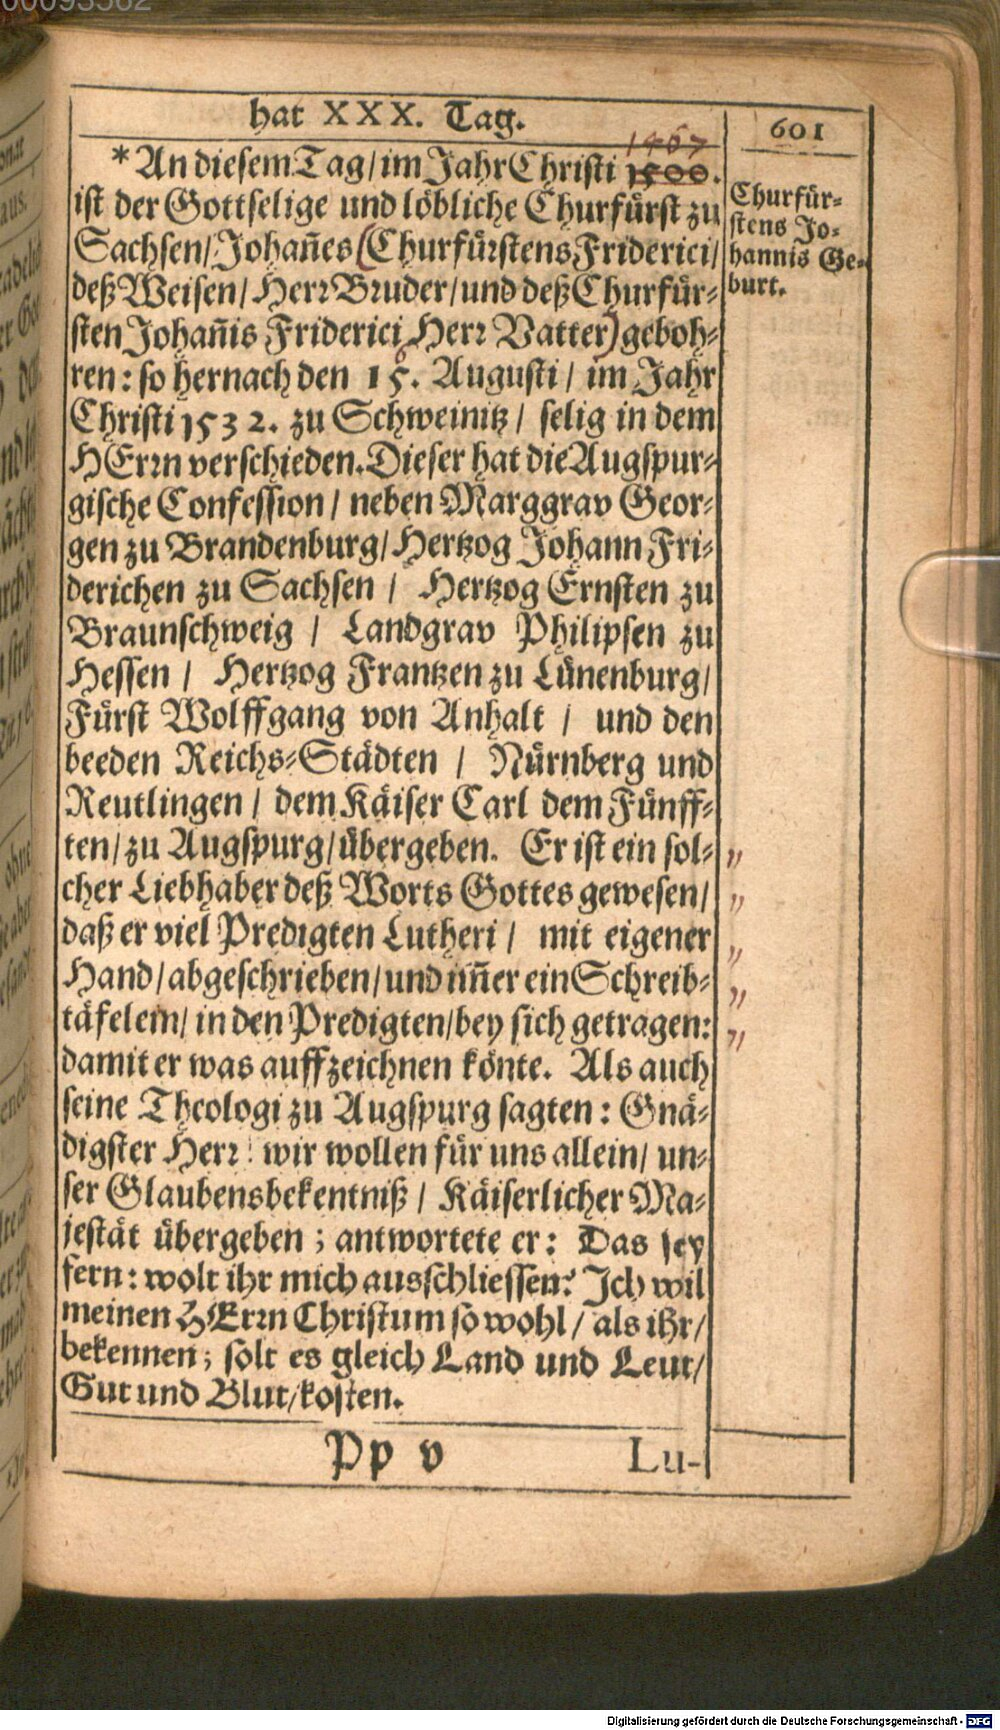 00093562
hat XXX. Tag.
601
1467
*An diesem Tag/ im Jahr Christi 1500.
ist der Gottselige und löbliche Churfürst zu
Sachsen/ Johan̄es (Churfürstens Friderici/
deß Weisen/ Herr Bruder/ und deß Churfür-
sten Johan̄is Friderici Herr Vatter) geboh-
ren: so hernach den 15. Augusti/ im Jahr
Christi 1532. zu Schweinitz/ selig in dem
HErrn verschieden. Dieser hat die Augspur-
gische Confession/ neben Marggrav Geor-
gen zu Brandenburg/ Hertzog Johann Fri-
derichen zu Sachsen/ Hertzog Ernsten zu
Braunschweig/ Landgrav Philipsen zu
Hessen/ Hertzog Frantzen zu Lünenburg/
Fürst Wolffgang von Anhalt/ und den
beeden Reichs-Städten/ Nürnberg und
Reutlingen/ dem Käiser Carl dem Fünff-
ten/ zu Augspurg/ übergeben. Er ist ein sol-
cher Liebhaber deß Worts Gottes gewesen/
daß er viel Predigten Lutheri/ mit eigener
Hand/ abgeschrieben/ und im̄er ein Schreib-
täfelein/ in den Predigten/ bey sich getragen:
damit er was auffzeichnen könte. Als auch
seine Theologi zu Augspurg sagten: Gnä-
digster Herr! wir wollen für uns allein/ un-
ser Glaubensbekentniß/ Käiserlicher Ma-
jestät übergeben; antwortete er: Das sey
fern: wolt ihr mich ausschliessen? Ich wil
meinen HErrn Christum so wohl/ als ihr/
bekennen; solt es gleich Land und Leut/
Gut und Blut/ kosten.
Churfür-
stens Jo-
hannis Ge-
burt.
Pp v
Lu-
Digitalisierung gefördert durch die Deutsche Forschungsgemeinschaft - DFG